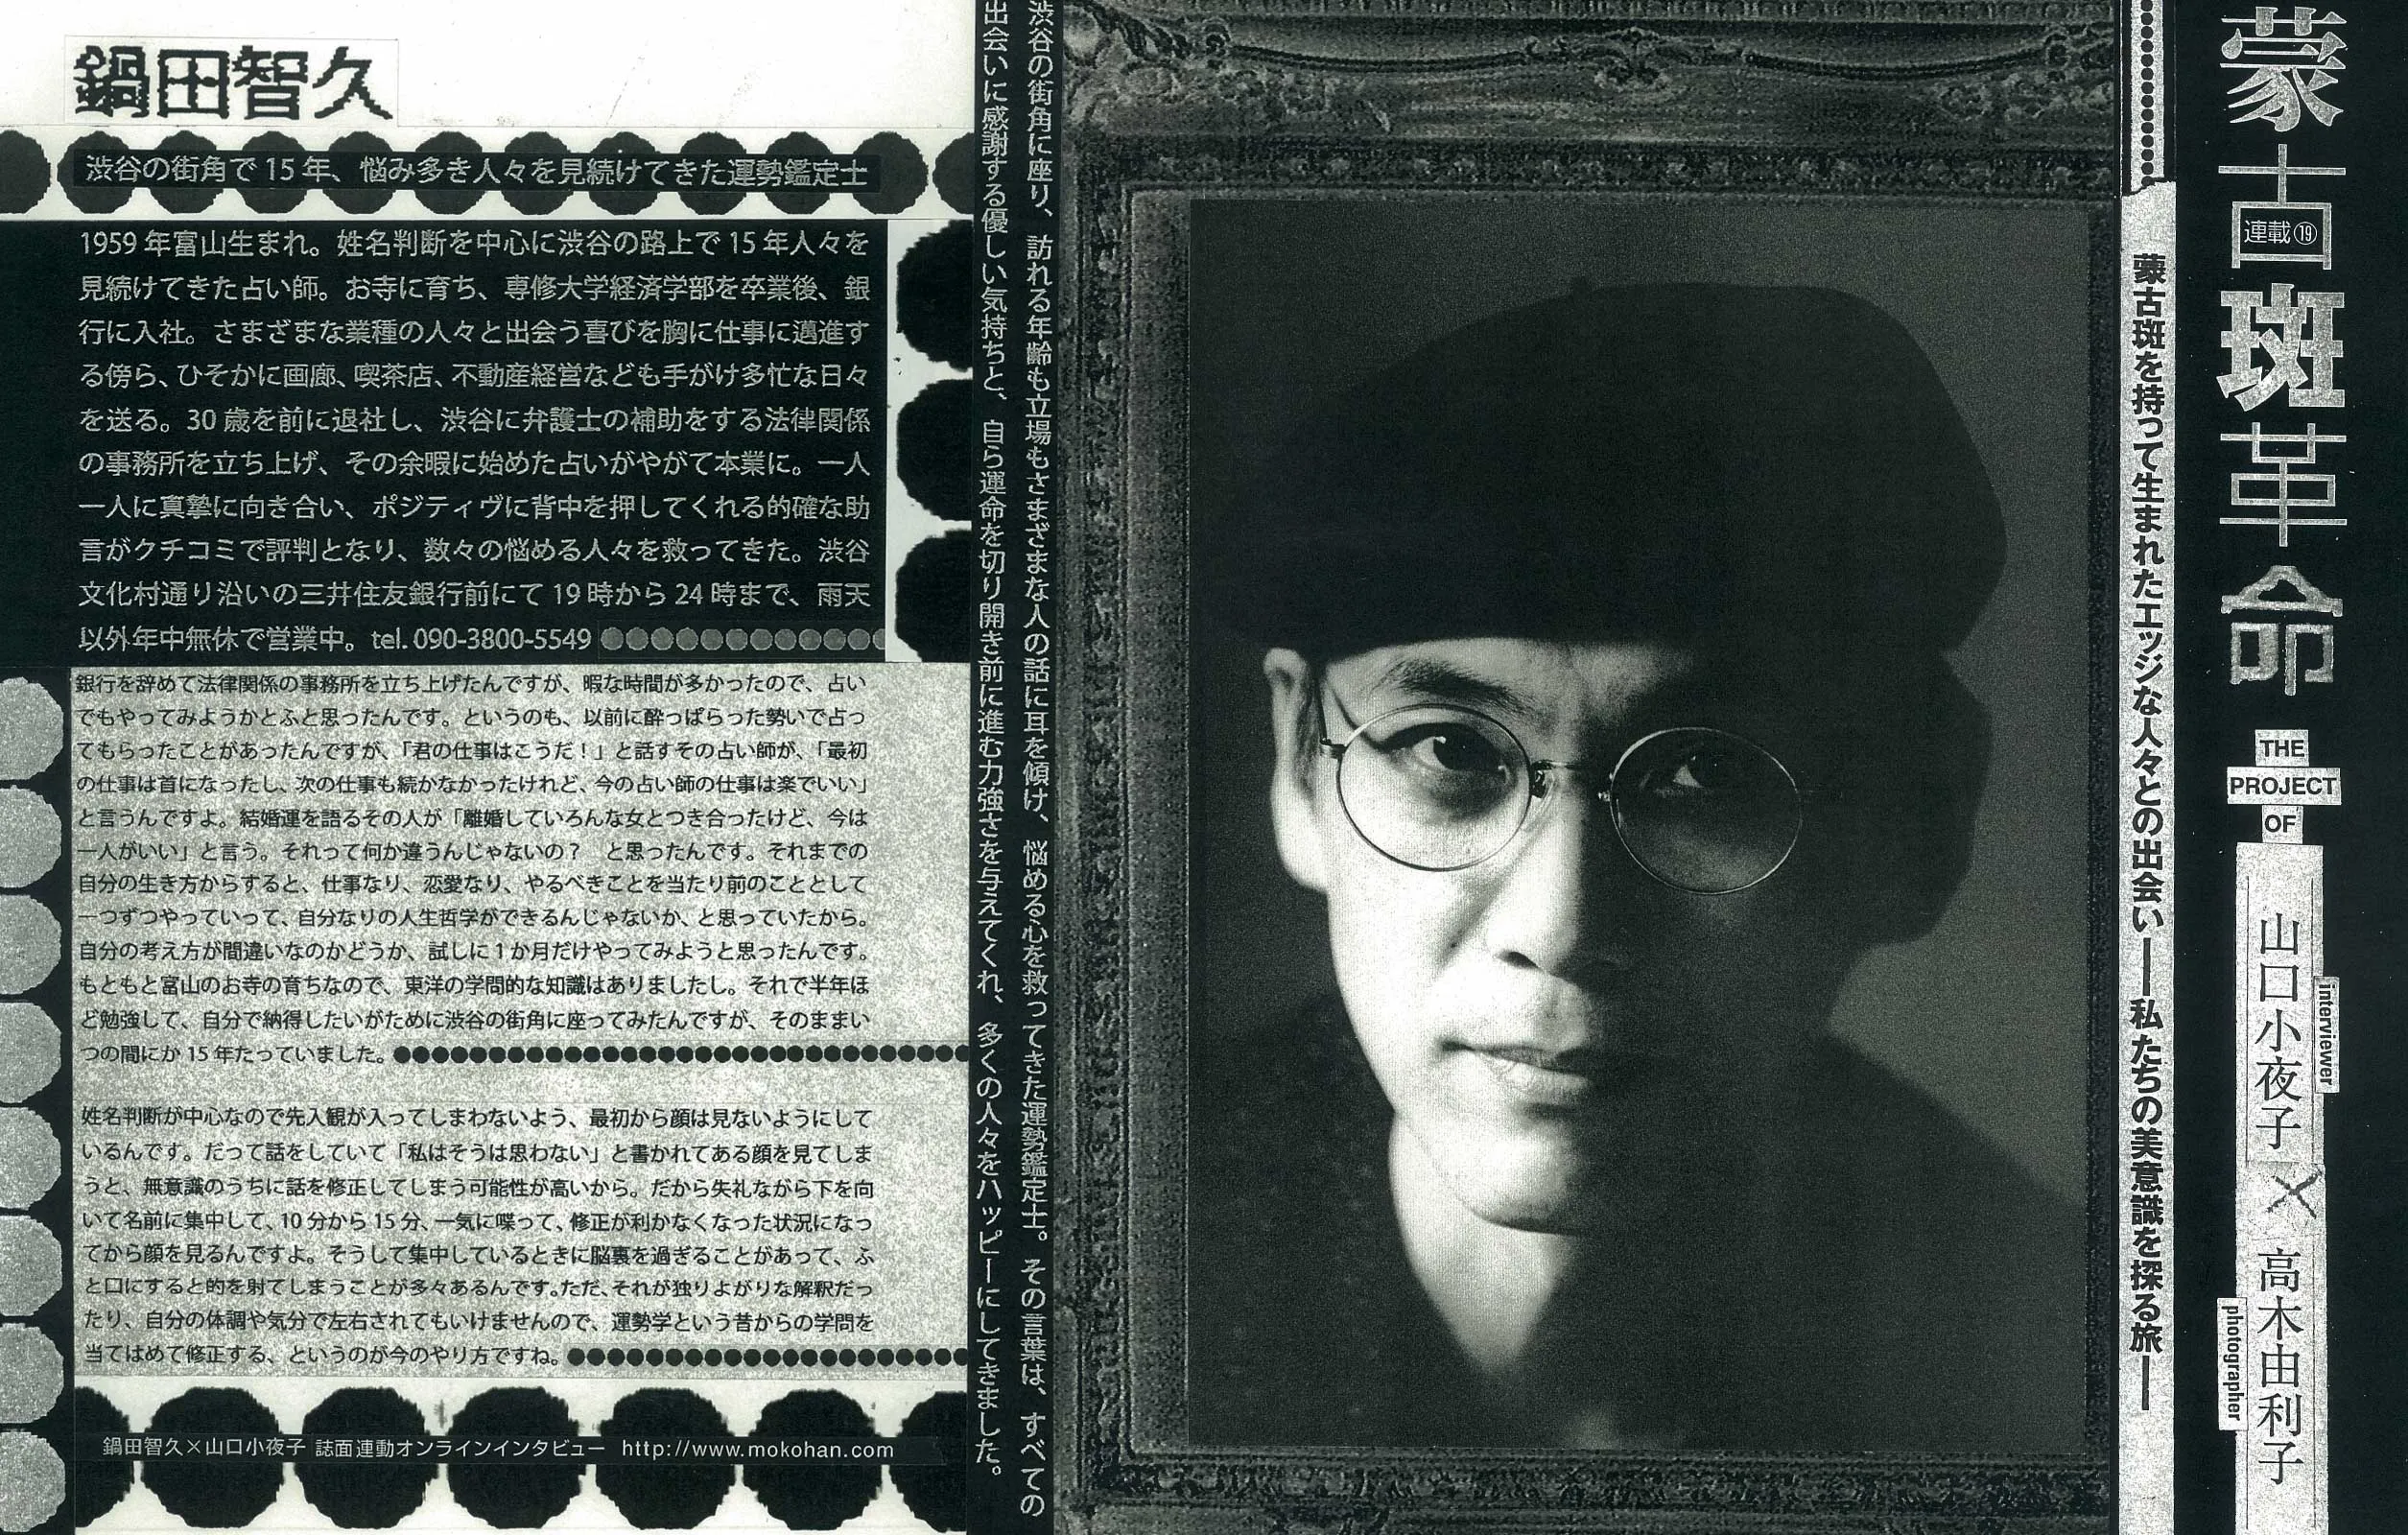 蒙古斑革命
連載⑲
THE
PROJECT
OF
山口小夜子×高木由利子
interviewer
photographer
蒙古斑を持って生まれたエッジな人々との出会い──私たちの美意識を探る旅──
渋谷の街角に座り、訪れる年齢も立場もさまざまな人の話に耳を傾け、悩める心を救ってきた運勢鑑定士。その言葉は、すべての
出会いに感謝する優しい気持ちと、自ら運命を切り開き前に進む力強さを与えてくれ、多くの人々をハッピーにしてきました。
鍋田智久
渋谷の街角で15年、悩み多き人々を見続けてきた運勢鑑定士
1959年富山生まれ。姓名判断を中心に渋谷の路上で15年人々を
見続けてきた占い師。お寺に育ち、専修大学経済学部を卒業後、銀
行に入社。さまざまな業種の人々と出会う喜びを胸に仕事に邁進す
る傍ら、ひそかに画廊、喫茶店、不動産経営なども手がけ多忙な日々
を送る。30歳を前に退社し、渋谷に弁護士の補助をする法律関係
の事務所を立ち上げ、その余暇に始めた占いがやがて本業に。一人
一人に真摯に向き合い、ポジティヴに背中を押してくれる的確な助
言がクチコミで評判となり、数々の悩める人々を救ってきた。渋谷
文化村通り沿いの三井住友銀行前にて19時から24時まで、雨天
以外年中無休で営業中。tel. 090-3800-5549
銀行を辞めて法律関係の事務所を立ち上げたんですが、暇な時間が多かったので、占い
でもやってみようかとふと思ったんです。というのも、以前に酔っぱらった勢いで占っ
てもらったことがあったんですが、「君の仕事はこうだ！」と話すその占い師が、「最初
の仕事は首になったし、次の仕事も続かなかったけれど、今の占い師の仕事は楽でいい」
と言うんですよ。結婚運を語るその人が「離婚していろんな女とつき合ったけど、今は
一人がいい」と言う。それって何か違うんじゃないの？　と思ったんです。それまでの
自分の生き方からすると、仕事なり、恋愛なり、やるべきことを当たり前のこととして
一つずつやっていって、自分なりの人生哲学ができるんじゃないか、と思っていたから。
自分の考え方が間違いなのかどうか、試しに1か月だけやってみようと思ったんです。
もともと富山のお寺の育ちなので、東洋の学問的な知識はありましたし。それで半年ほ
ど勉強して、自分で納得したいがために渋谷の街角に座ってみたんですが、そのままい
つの間にか15年たっていました。
姓名判断が中心なので先入観が入ってしまわないよう、最初から顔は見ないようにして
いるんです。だって話をしていて「私はそうは思わない」と書かれてある顔を見てしま
うと、無意識のうちに話を修正してしまう可能性が高いから。だから失礼ながら下を向
いて名前に集中して、10分から15分、一気に喋って、修正が利かなくなった状況になっ
てから顔を見るんですよ。そうして集中しているときに脳裏を過ぎることがあって、ふ
と口にすると的を射てしまうことが多々あるんです。ただ、それが独りよがりな解釈だっ
たり、自分の体調や気分で左右されてもいけませんので、運勢学という昔からの学問を
当てはめて修正する、というのが今のやり方ですね。
鍋田智久×山口小夜子 誌面連動オンラインインタビュー http://www.mokohan.com